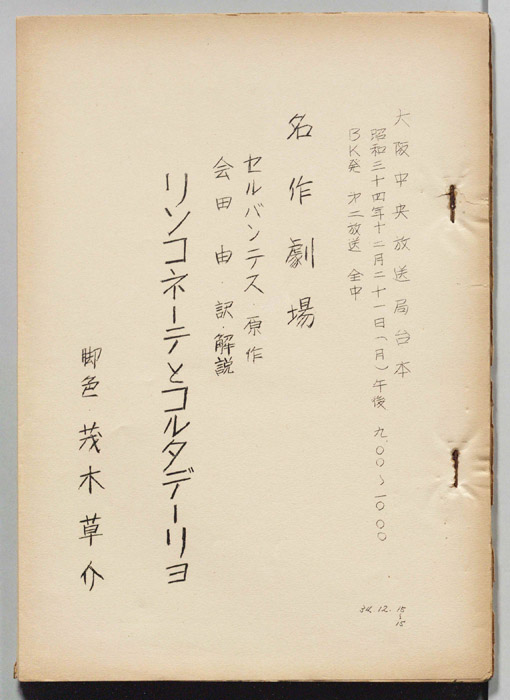 大阪中央放送局台本
昭和三十四年十二月二十一日(月)午後 九.〇〇〜一〇.〇〇
BK発 第二放送 全中
名作劇場
セルバンテス・原作
会田由・訳・解説
リンコネーテとコルタデーリヨ
脚色 茂木草介
34.12.15